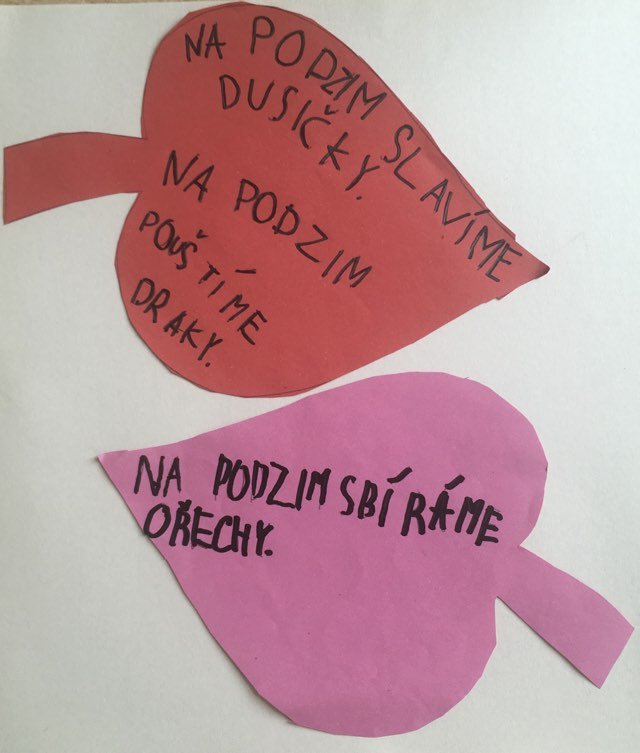 NA PODZIM SLAVÍME
DUSIČKY.
NA PODZIM
POUŠTÍME
DRAKY.
NA PODZIM SBÍRÁME
OŘECHY.